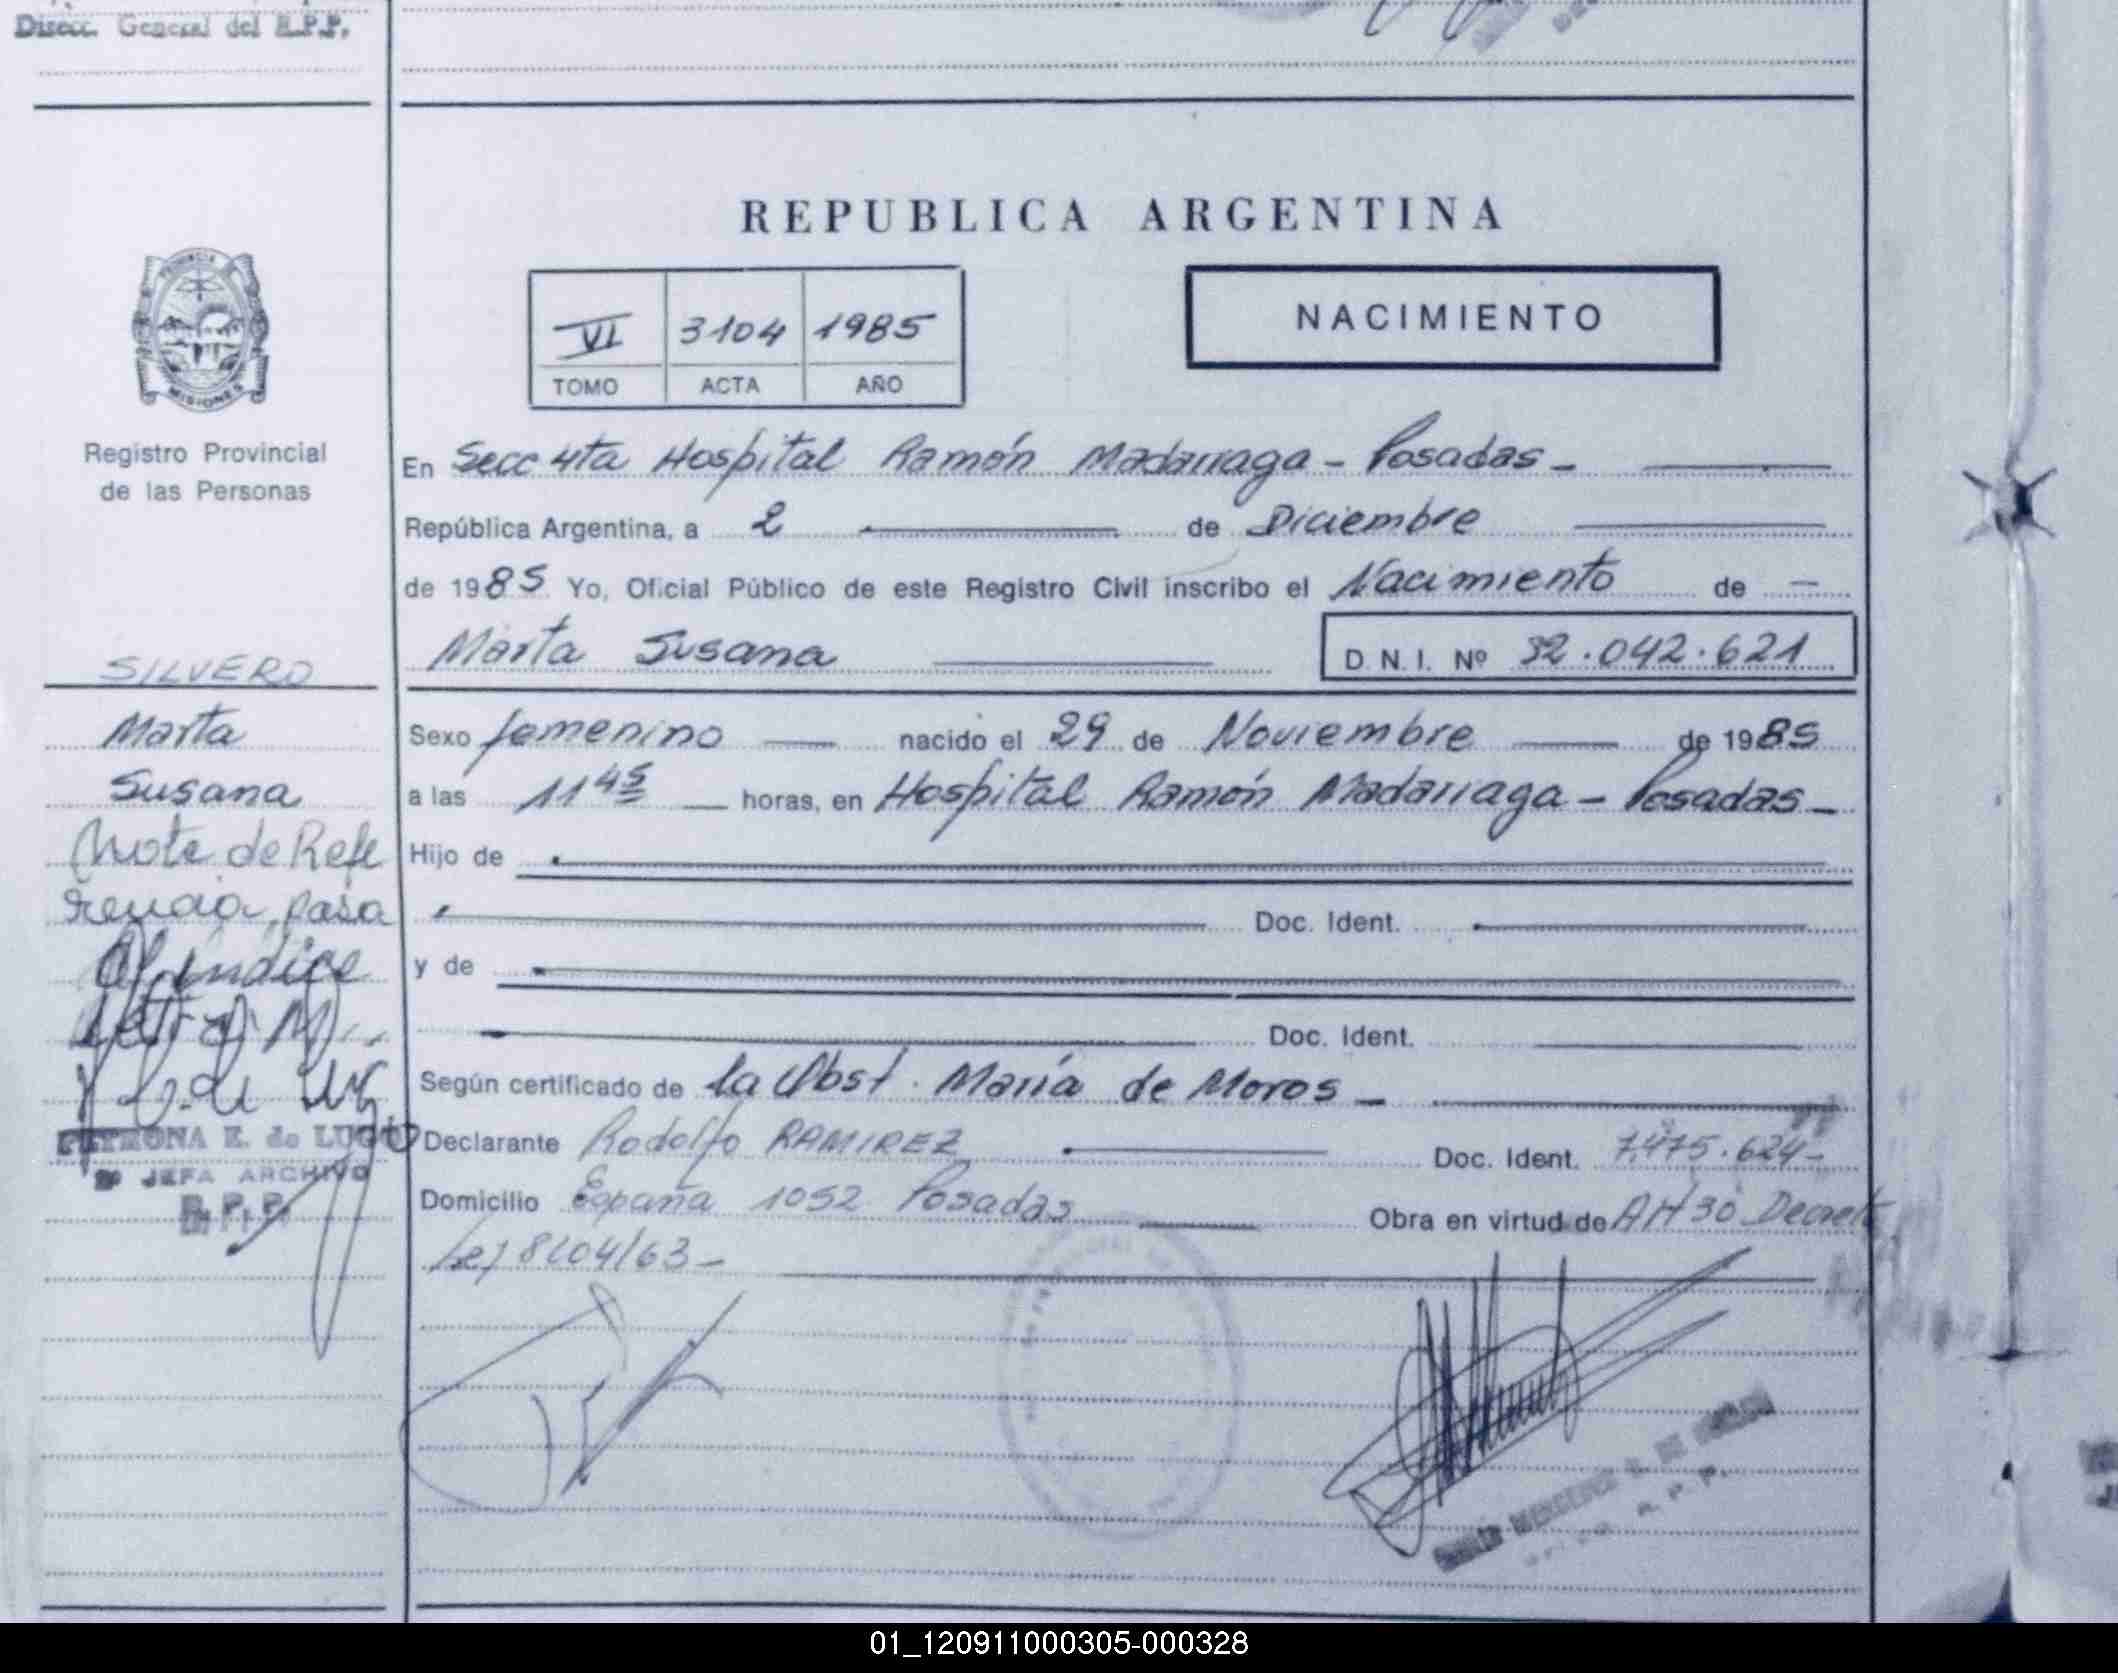 Direcc. General del R.P.P.
REPUBLICA ARGENTINA
PROVINCIA
MISIONES
VI 3104 1985
TOMO ACTA AÑO
NACIMIENTO
Registro Provincial
de las Personas
En Secc 4ta Hospital Ramón Madariaga - Posadas -
República Argentina, a 2 de Diciembre
de 1985 Yo, Oficial Público de este Registro Civil inscribo el Nacimiento de
Marta Susana D.N.I. Nº 32.042.621
SILVERO
Marta
Susana
Nota de Refe
rencia, pasa
Al Indice
Letra M
PETRONA E. de LUGO
JEFA ARCHIVO
R.P.P.
Sexo femenino nacido el 29 de Noviembre de 1985
a las 11 45 horas, en Hospital Ramón Madariaga - Posadas -
Hijo de
Doc. Ident.
y de
Doc. Ident.
Según certificado de la Obst. María de Moros -
Declarante Rodolfo RAMIREZ Doc. Ident. 7.475.624-
Domicilio España 1052 Posadas Obra en virtud de Art 30 Decreto
Ley 8204/63 -
R.P.P.
01_120911000305-000328